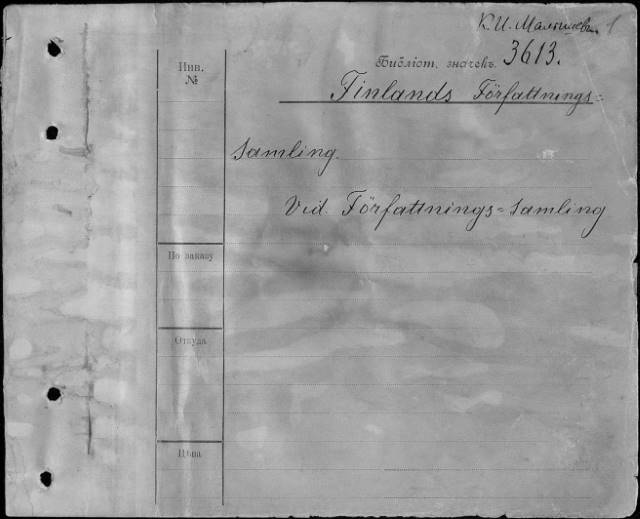 К. И. Малышев. 1
Библіот. значекъ 3613.
Инв.
№
Finlands Författnings=
samling.
Vid. Författnings=samling
По заказу
Откуда
Цѣна